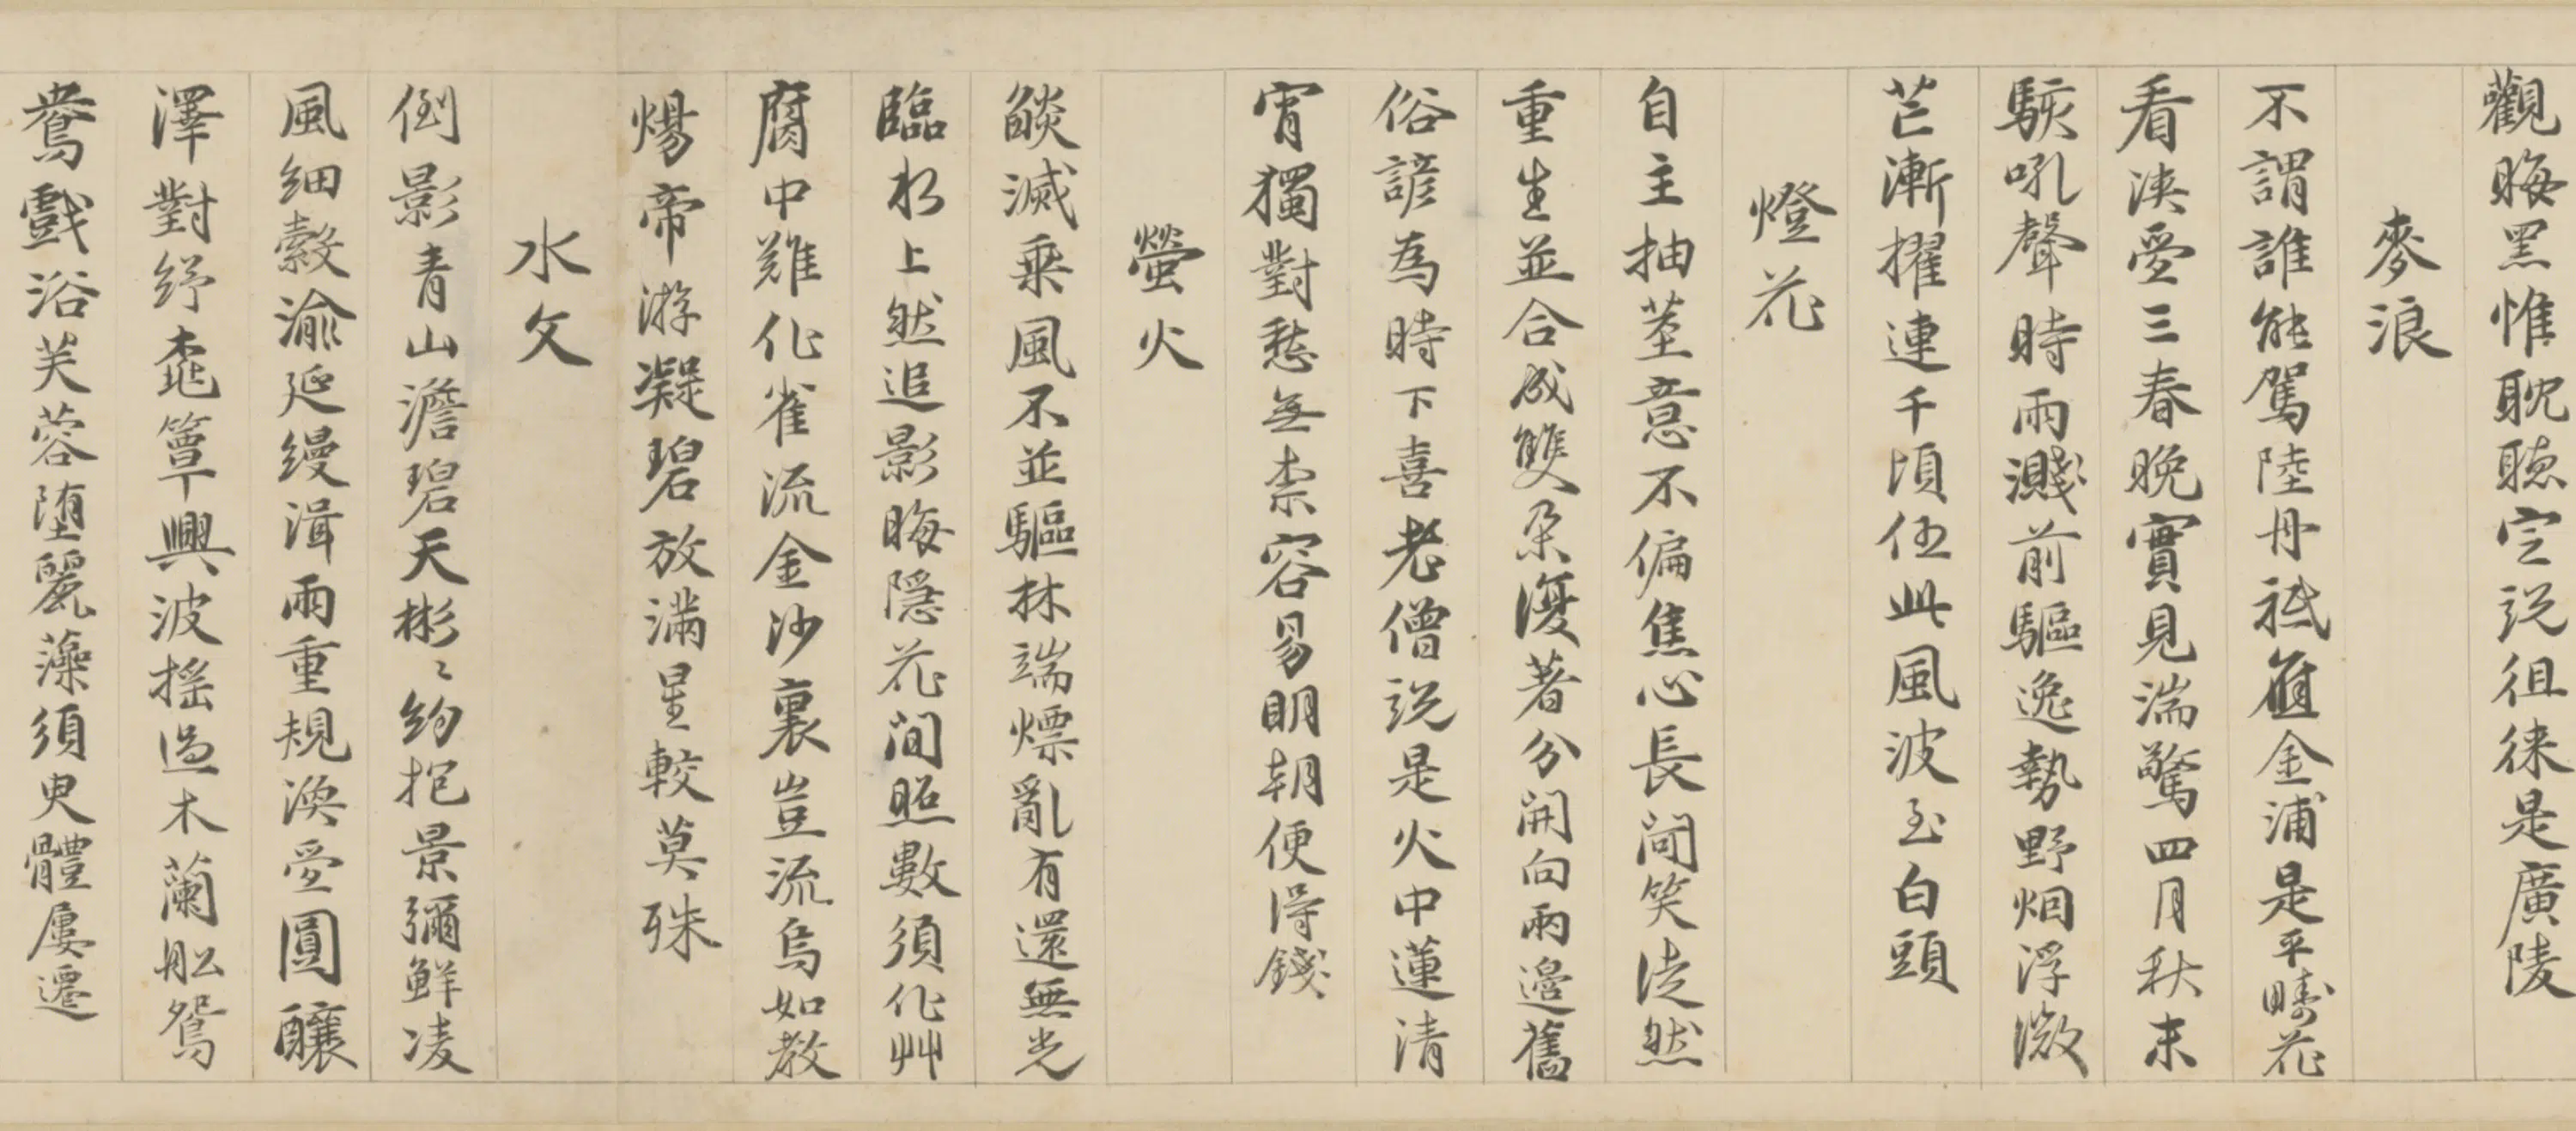 觀晦黑惟耽聽空説徂徠是廣陵
麥浪
不謂誰能駕陸舟祗應金浦是平疇花
看浹愛三春晚實見湍驚四月秋末
駭吼聲時雨濺前驅逸勢野烟浮微
芒漸擢連千頃任此風波至白頭
燈花
自主抽莖意不偏焦心長間笑徒然
重生並合成雙朵復著分開向兩邊舊
俗諺為時下喜老僧説是火中蓮清
宵獨對愁無柰容易明朝便得錢
螢火
燄滅乘風不並驅林端熛亂有還無光
臨水上然追影晦隱花間照數須化艸
腐中難化雀流金沙裏豈流烏如教
煬帝游凝碧放滿星較莫殊
水文
倒影青山澹碧天彬〻約抱景彌鮮凌
風細縠渝延縵湒雨重規渙受圓釀
澤對紓 簟興波搖過木蘭舩鴛
鴦戲浴芙蓉堕麗藻須臾體屢遷